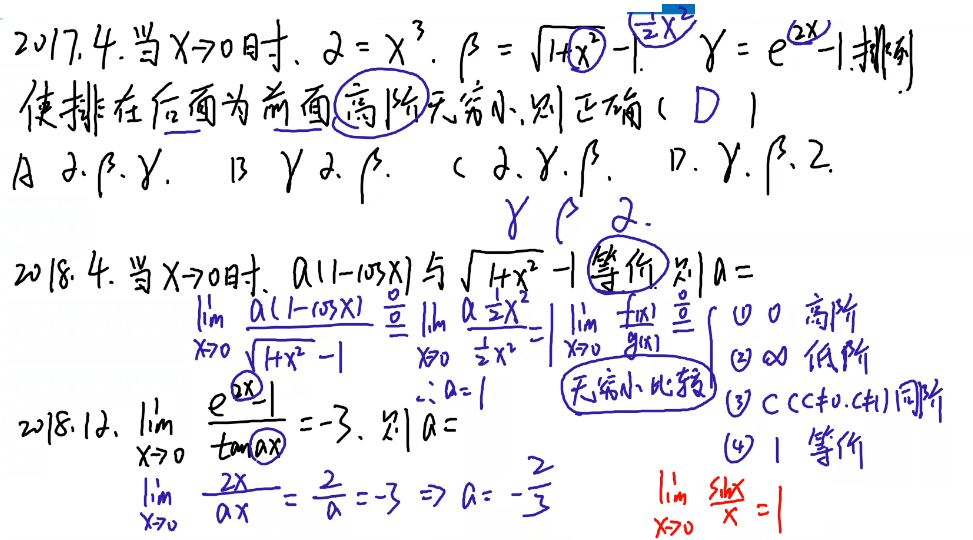 2017.4.当X→0时. α=X³. β=√(1+x²)-1. ½X² γ=e^(2X)-1.排列
使排在后面为前面高阶无穷小,则正确( D )
A α.β.γ. B γ α.β. C α.γ.β. D.γ.β.α.
γ β α.
2018.4.当X→0时. a(1-cosX)与√(1+x²)-1等价.则a=
lim X→0 a(1-cosX)/(√(1+x²)-1) 0/0= lim X→0 (a ½X²)/(½X²)=1
∴a=1
lim X→0 f(x)/g(x) 0/0= { ① 0 高阶
② ∞ 低阶
无穷小比较
③ C(C≠0.C≠1)同阶
④ 1 等价
2018.12. lim X→0 (e^(2X)-1)/(tan ax)=-3.则a=
lim X→0 2X/ax = 2/a =-3 ⇒ a=-2/3
lim X→0 sinx/x =1